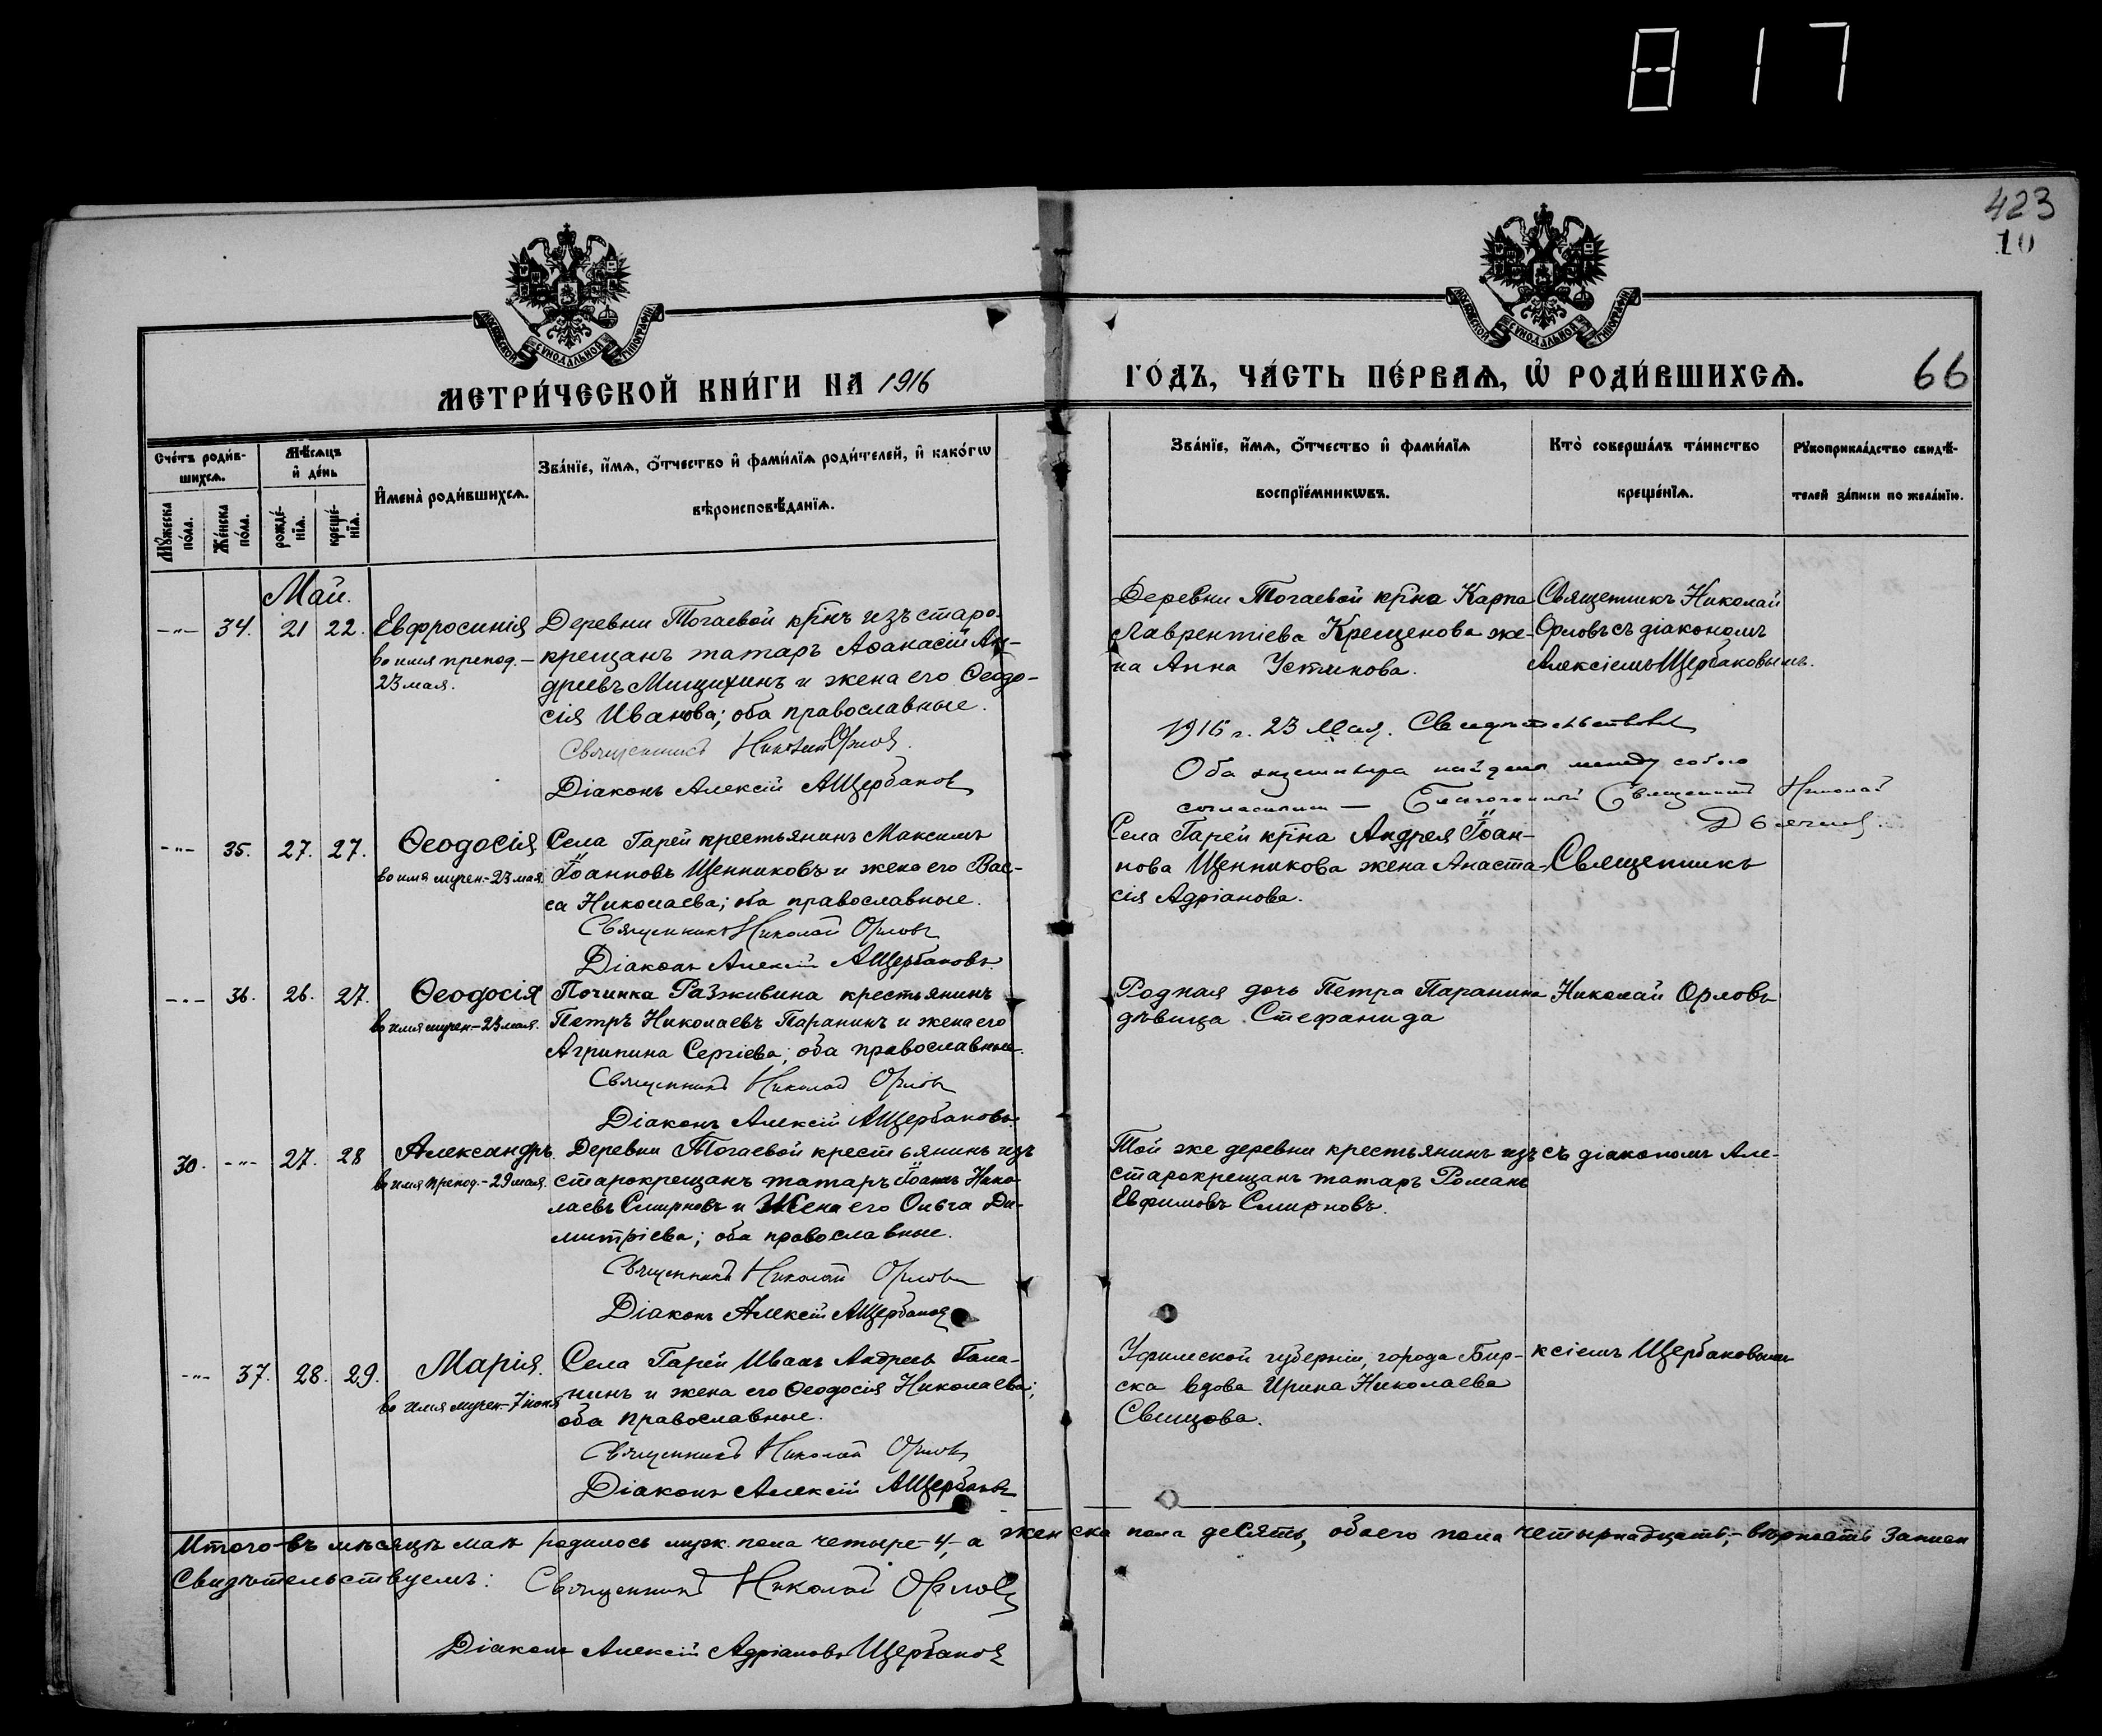 817
423
10
МОСКОВСКОЙ СѴНОДАЛЬНОЙ ТИПОГРАФІИ
МОСКОВСКОЙ СѴНОДАЛЬНОЙ ТИПОГРАФІИ
МЕТРИ́ЧЕСКОЙ КНИ́ГИ НА 1916
ГО́ДЪ, ЧА́СТЬ ПЕ́РВАѦ, Ѡ҆ РОДИ́ВШИХСѦ.
66
Сче́тъ роди́в-
шихсѧ.
Мꙋ́жеска по́ла.
Же́нска по́ла.
Мѣ́сѧцъ
и҆ де́нь
рожде́-
нїѧ.
креще́-
нїѧ.
И҆мена̀ роди́вшихсѧ.
Зва́нїе, и҆́мѧ, ѻ҆́тчество и҆ фами́лїѧ роди́телей, и҆ како́гѡ
вѣроисповѣ́данїѧ.
Зва́нїе, и҆́мѧ, ѻ҆́тчество и҆ фами́лїѧ
воспрїе́мникѡвъ.
Кто̀ соверша́лъ та́инство
креще́нїѧ.
Рꙋкоприкла́дство свидѣ́-
телей за́писи по жела́нїю.
Май.
-"- 34. 21 22.
Евфросинія
во имя препод.-
23 мая.
Деревни Тогаевой кр̃нъ изъ старо-
крещанъ татаръ Аѳанасій Ан-
древъ Мищихинъ и жена его Ѳеодо-
сія Иванова; оба православные.
Священникъ Николай Орловъ.
Діаконъ Алексій АЩербаковъ
Деревни Тогаевой кр̃на Карпа
Лаврентіева Крещенова же-
на Анна Устинова.
Священникъ Николай
Орловъ съ діакономъ
Алексіемъ Щербаковымъ.
1916 г. 23 Мая. Свидѣтельствовал
Оба экземпляра найдены между собою
согласными — Благочинный Священникъ Николай
-"- 35. 27. 27.
Ѳеодосія
во имя мучен.-29 мая.
Села Гарей крестьянинъ Максимъ
Іоанновъ Щенниковъ и жена его Вас-
са Николаева; оба православные.
Священникъ Николай Орловъ
Діаконъ Алексій АЩербаковъ.
Села Гарей кр̃на Андрея Іоан-
нова Щенникова жена Анаста-
сія Адріанова.
Священникъ
-"- 36. 26. 27.
Ѳеодосія
во имя мучен-29 мая.
Починка Разживина крестьянинъ
Петръ Николаевъ Паранинъ и жена его
Агрипина Сергіева; оба православные.
Священникъ Николай Орловъ
Діаконъ Алексій АЩербаковъ.
Родная дочь Петра Паранина
дѣвица Стефанида
Николай Орловъ
30. -"- 27. 28
Александръ.
во имя препод.-29 мая.
Деревни Тогаевой крестьянинъ изъ
старокрещанъ татаръ Іоаннъ Нико-
лаевъ Смирновъ и Жена его Ольга Ди-
митріева; оба православные.
Священникъ Николай Орловъ
Діаконъ Алексій АЩербаковъ
Той же деревни крестьянинъ изъ
старокрещанъ татаръ Романъ
Евфимовъ Смирновъ.
съ діакономъ Але-
-"- 37. 28. 29.
Марія.
во имя мучен.-7 іюня
Села Гарей Иванъ Андреевъ Гала-
нинъ и жена его Ѳеодосія Николаева;
оба православные.
Священникъ Николай Орловъ
Діаконъ Алексій АЩербаковъ
Уфимской губерніи, города Бир-
ска вдова Ирина Николаева
Свинцова.
ксіемъ Щербаковымъ
Итого въ мѣсяцѣ маѣ родилось муж. пола четыре-4, а женска пола десять, обоего пола четырнадцать,- вѣрность записи
Свидѣтельствуемъ: Священникъ Николай Орловъ
Діаконъ Алексій Адріановъ Щербаковъ